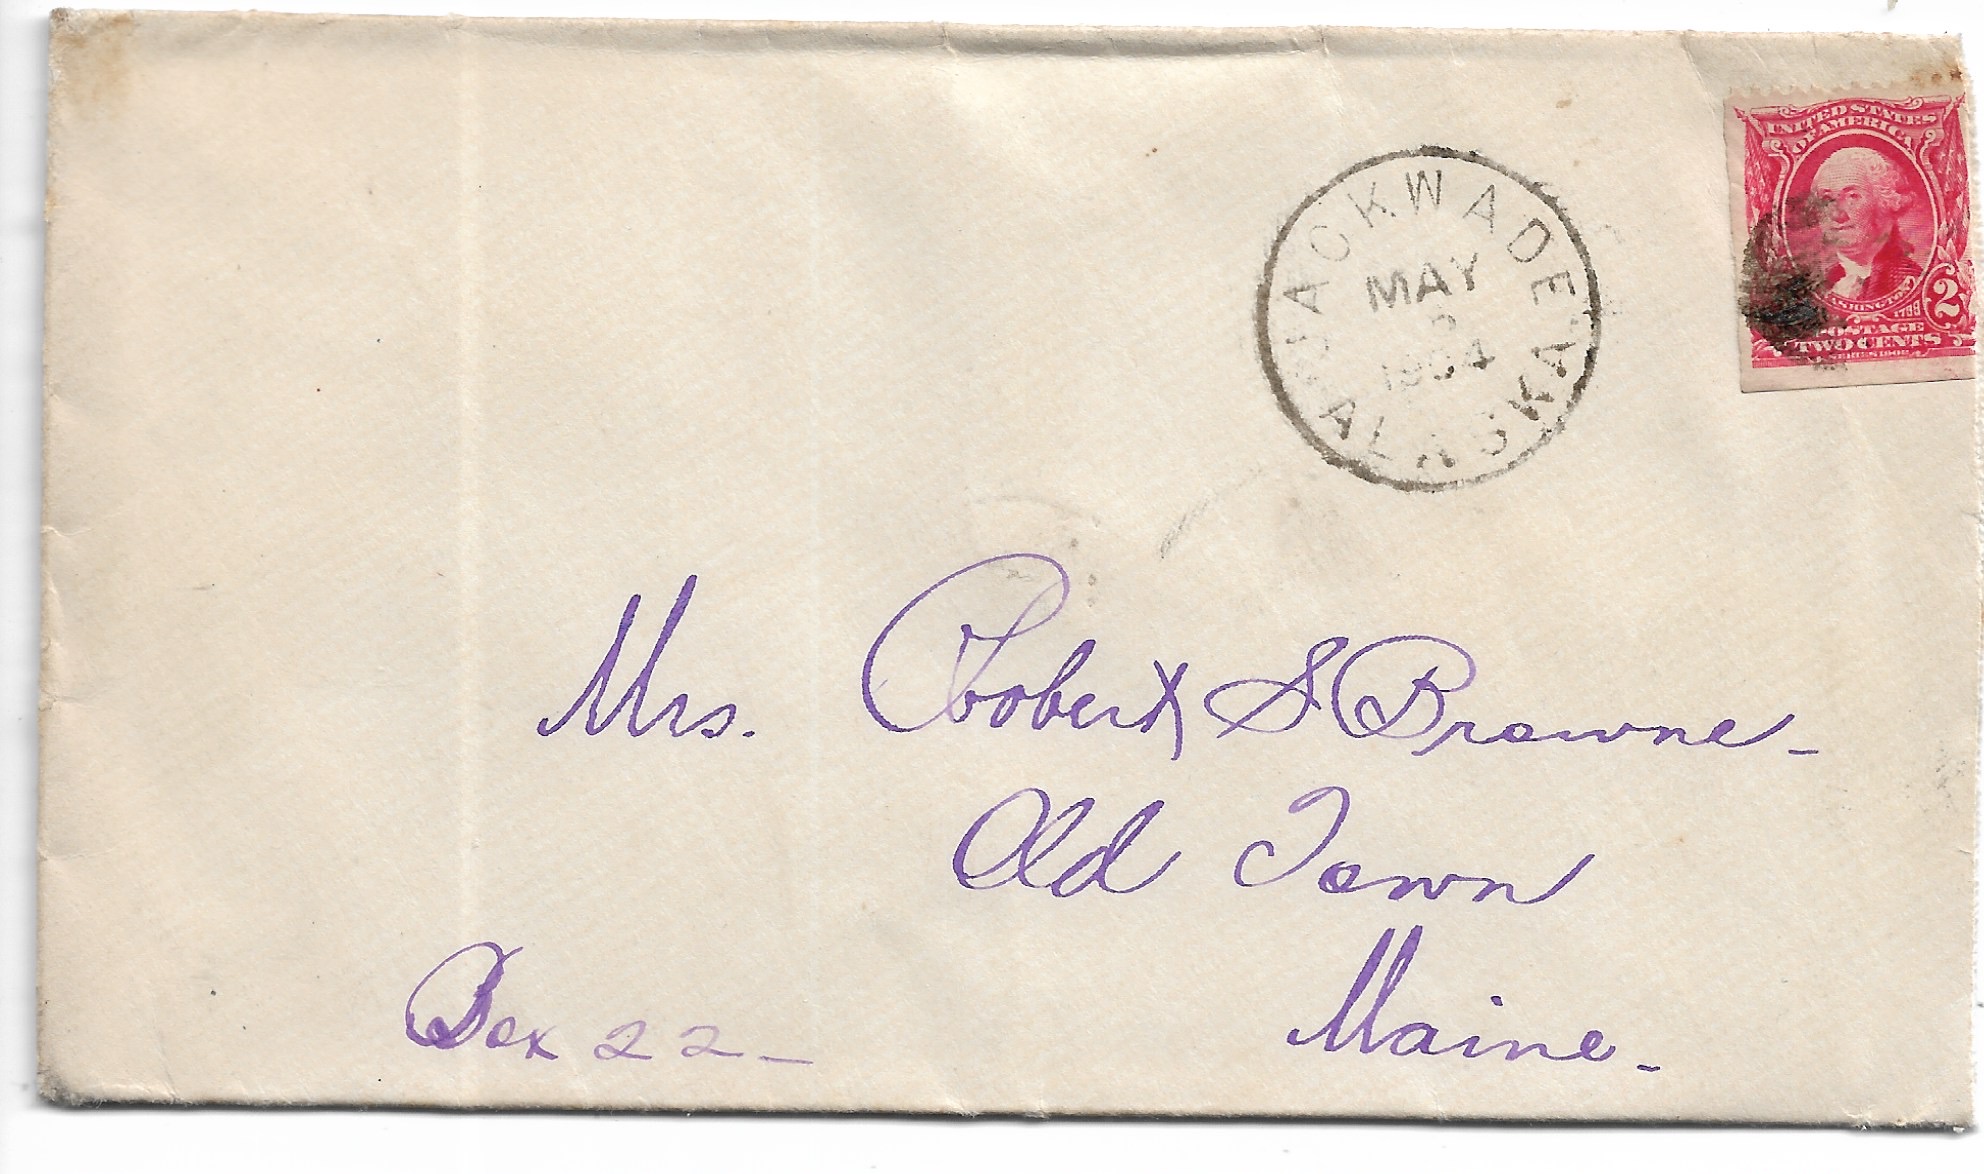 JACKWADE
MAY
1904
ALASKA.
UNITED STATES
OF AMERICA
WASHINGTON
1799
2
POSTAGE
TWO CENTS
SERIES 1902
Mrs. Robert S Browne -
Old Town
Box 22 -
Maine. -